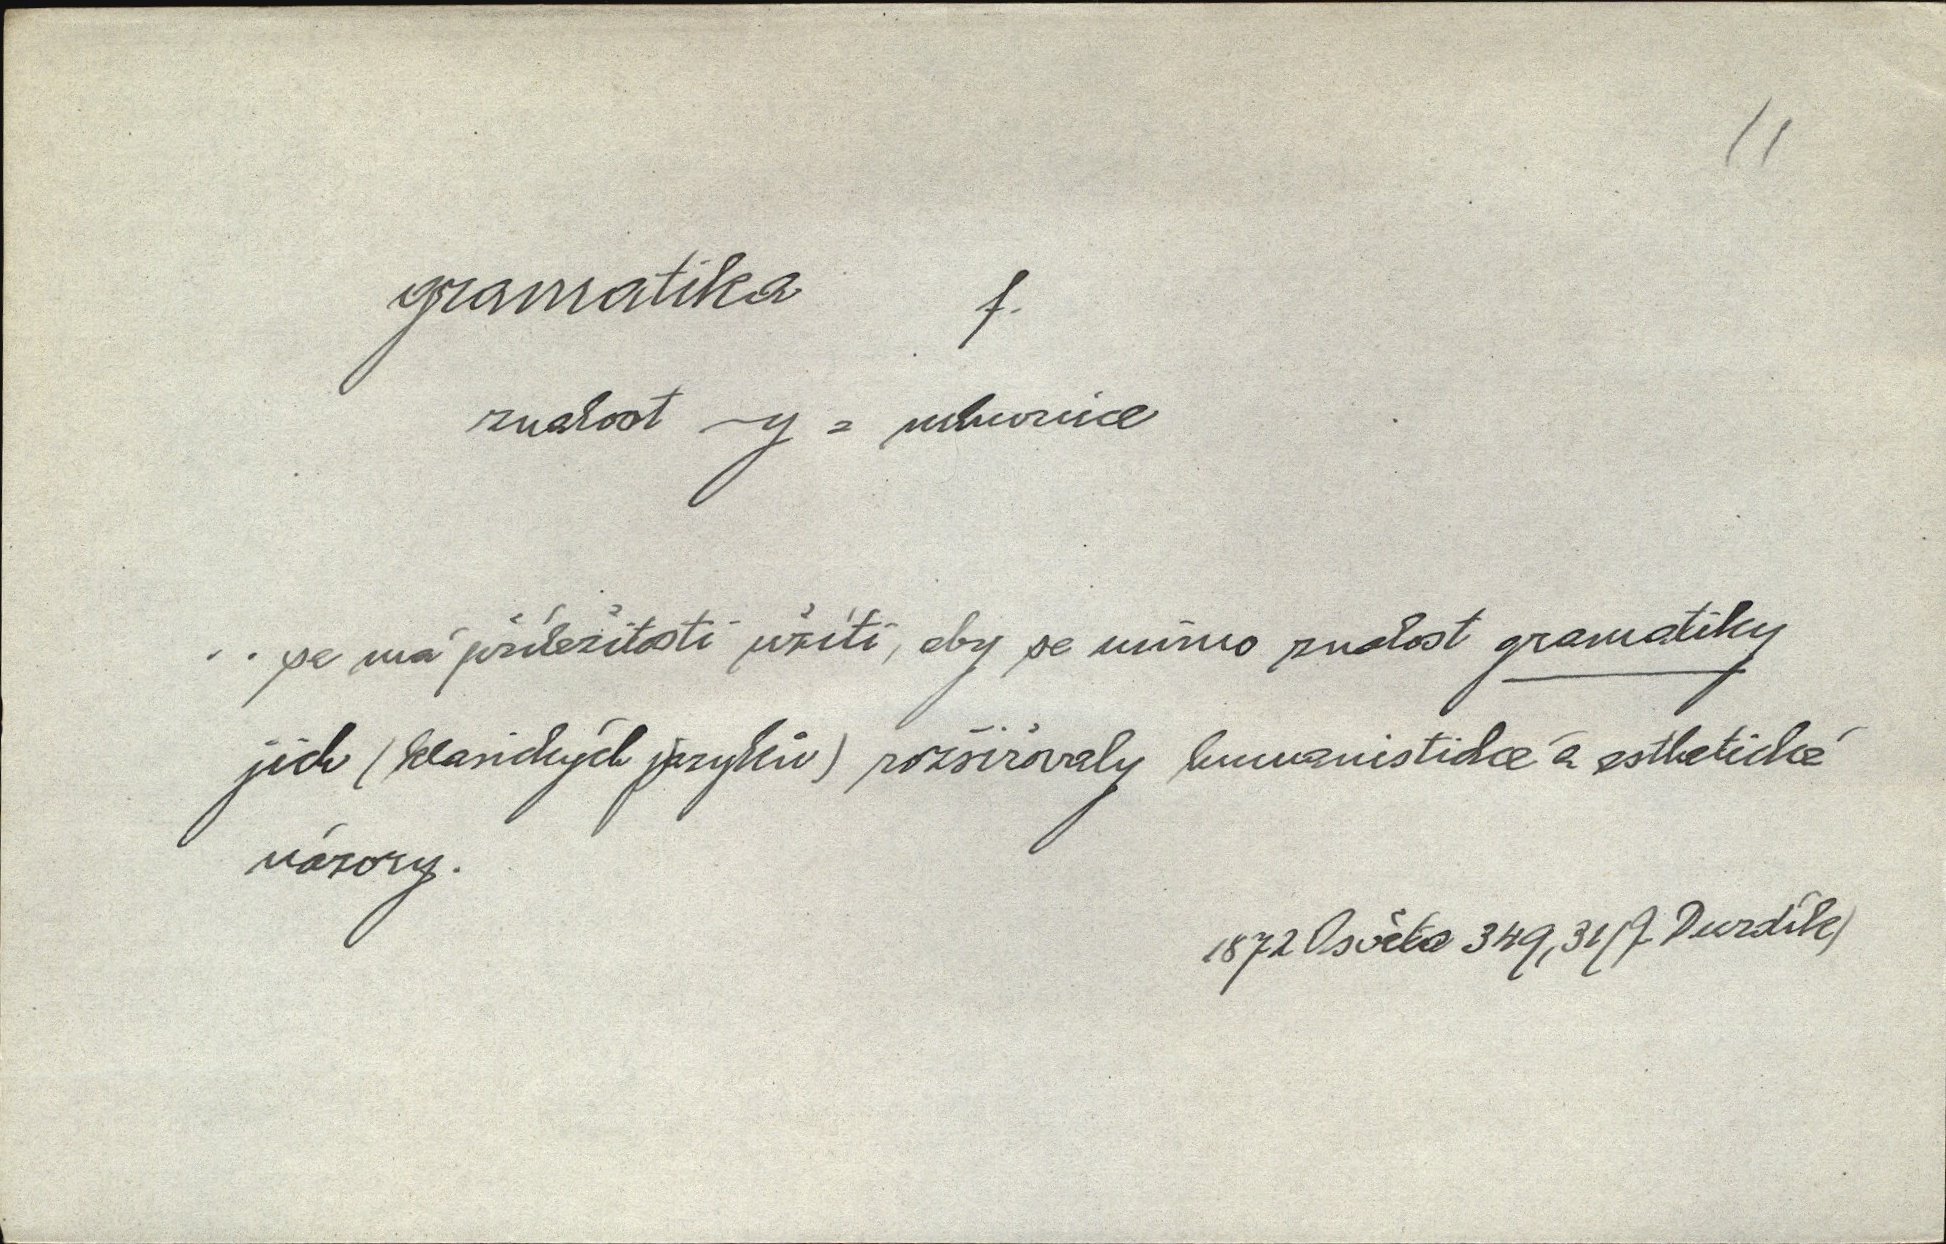 11
gramatika f.
znalost ~y = mluvnice
.. se má příležitosti užíti, aby se mimo znalost gramatiky
jich (klasických jazyků) rozšiřovaly humanistické a esthetické
názory.
1872 Osvěta 349,31 (J. Durdík)